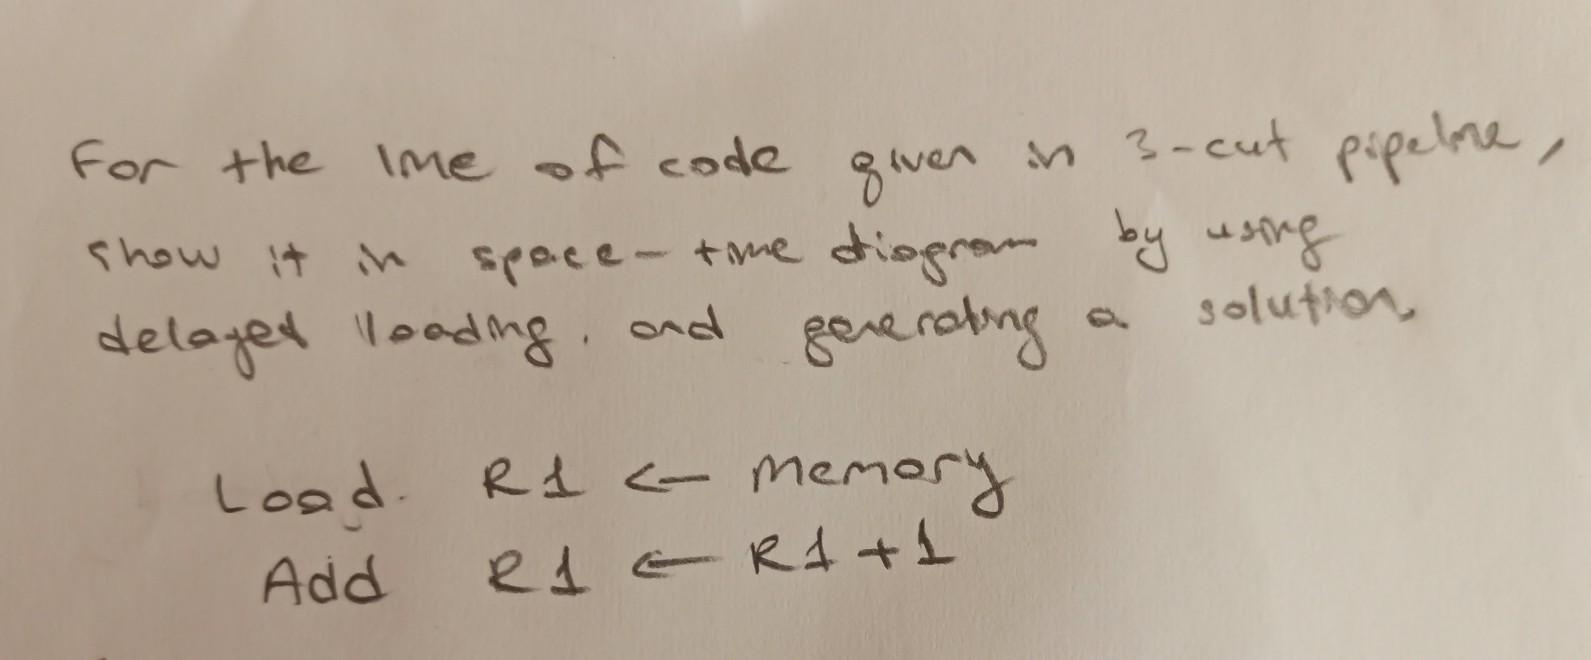 For the line of code given in 3-cut pipeline,
show it in space-time diagram by using
delayed loading, and generating a solution.
Load. R1 ← Memory
Add R1 ← R1+1